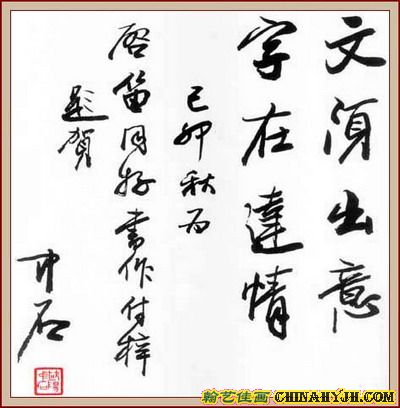 文須出意
字在達情
己卯秋為
啓笛同好書作付梓
題賀
中石
翰艺佳画 CHINAHYJH.COM